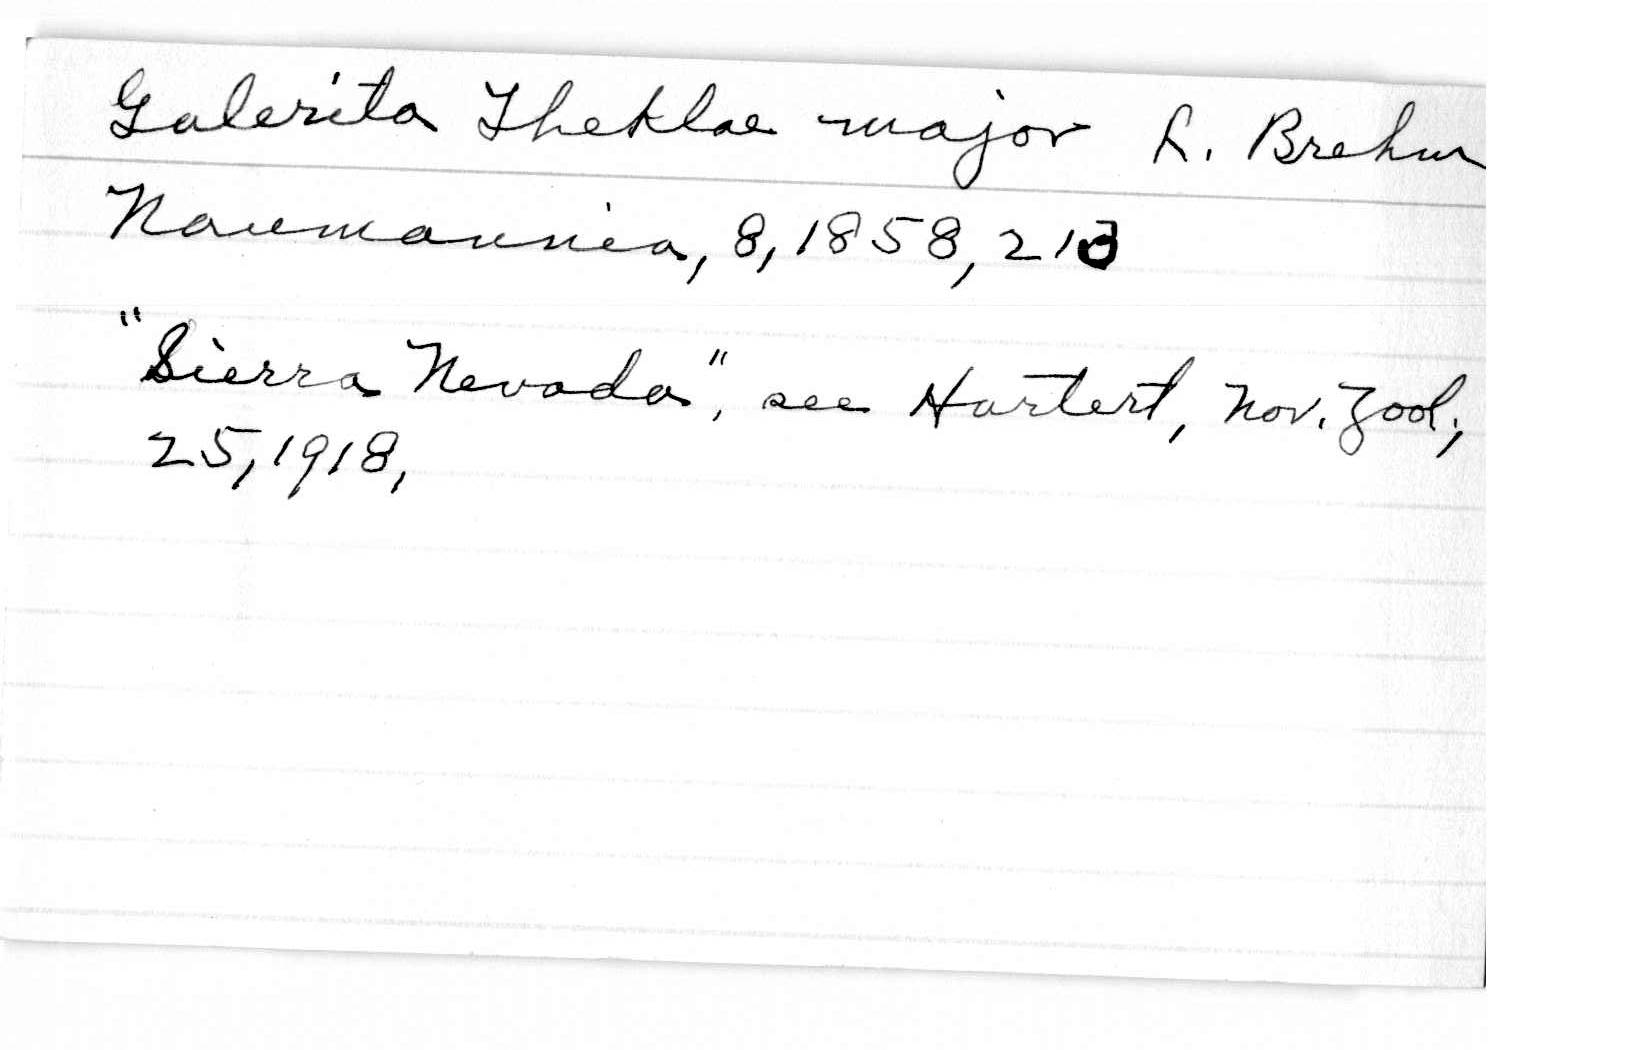 Galerita Theklae major L. Brehm
Naumannia, 8, 1858, 213
"Sierra Nevada", see Hartert, Nov. Zool.,
25, 1918,